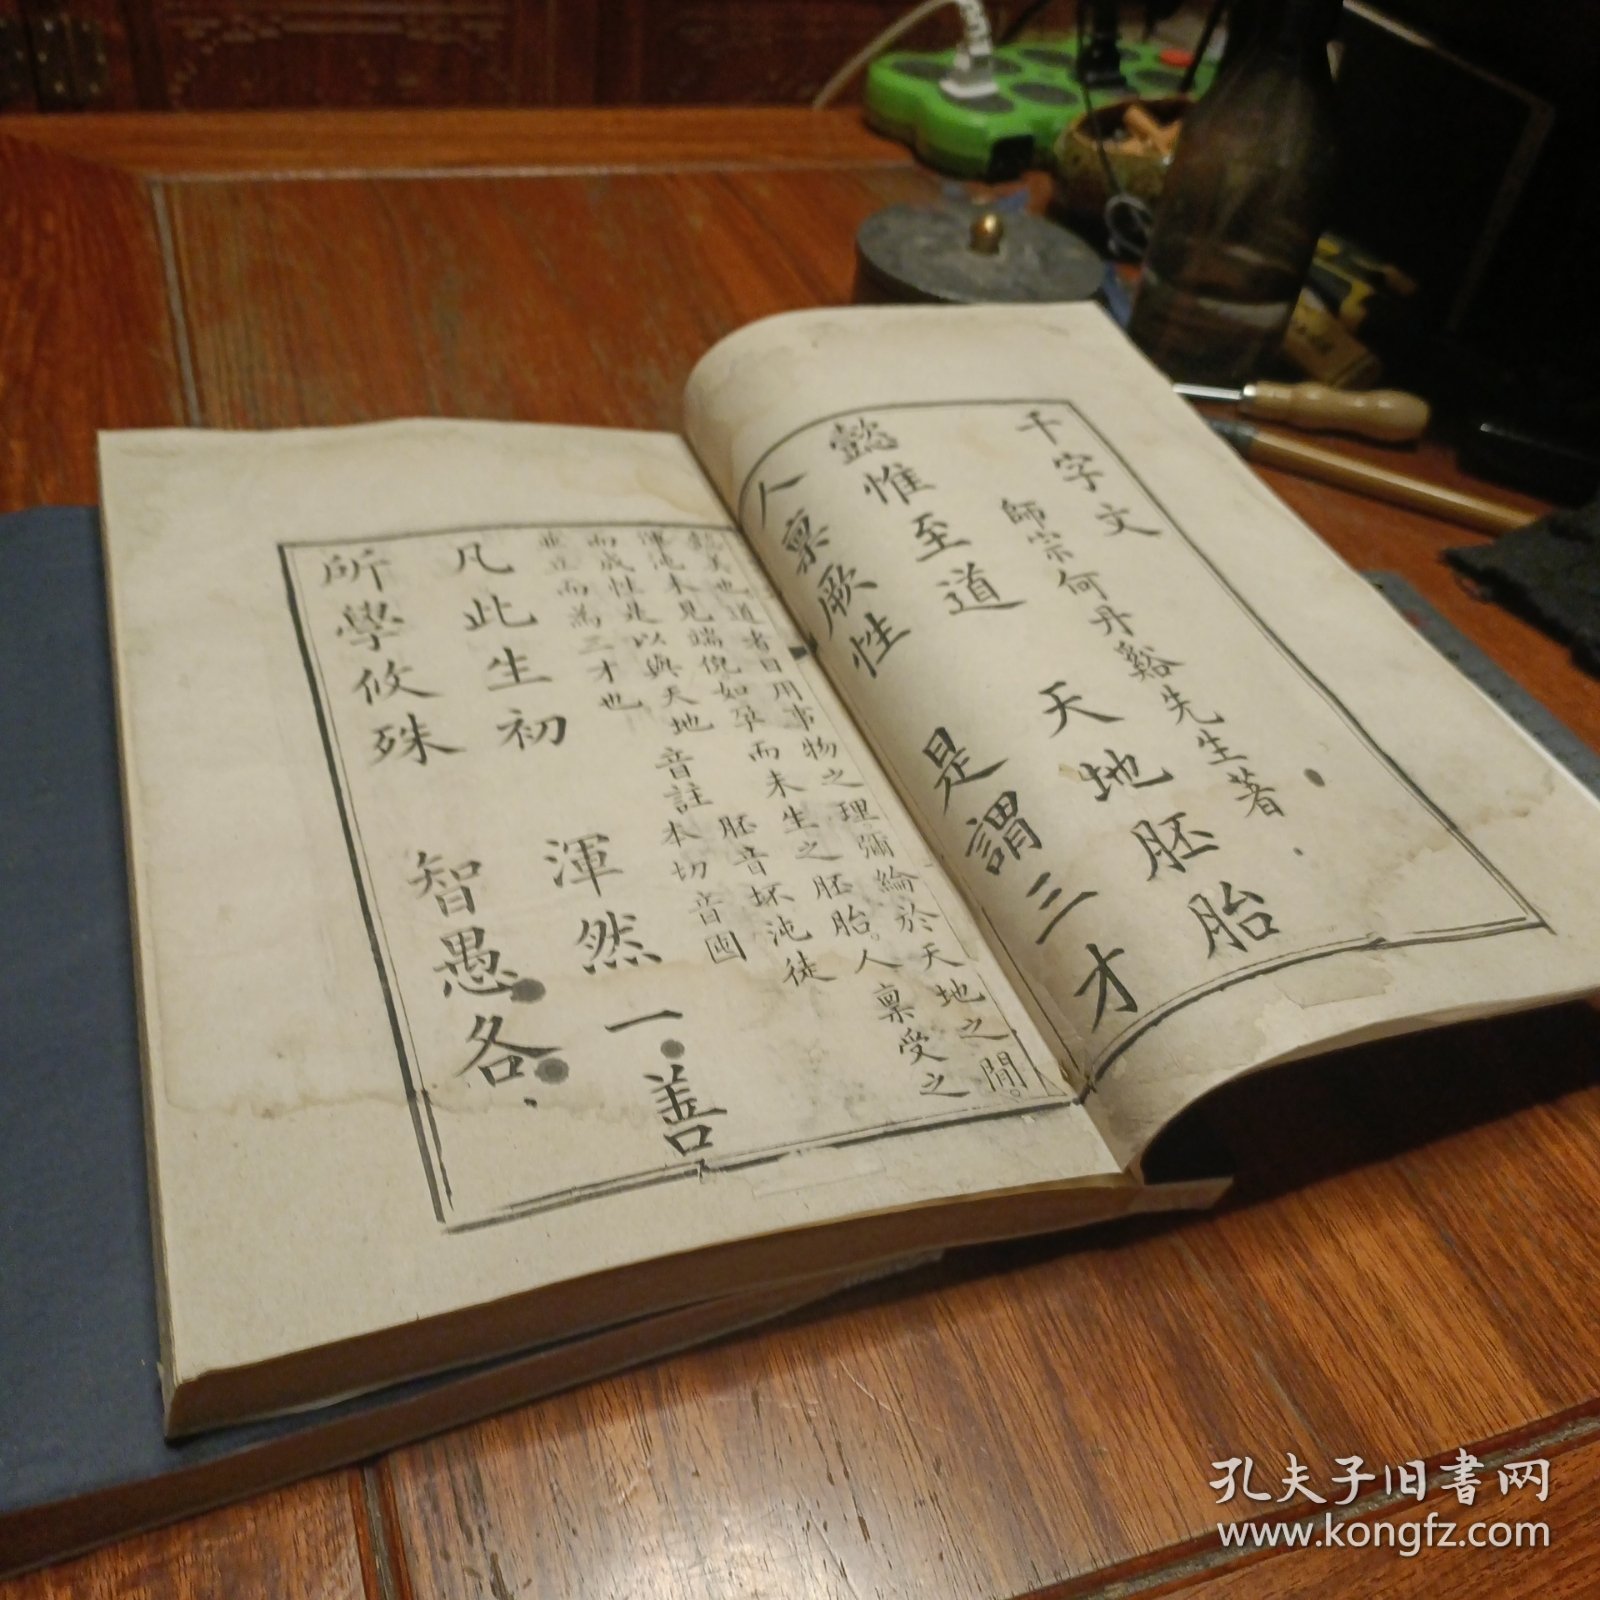 千字文
師宗何丹谿先生著
天地胚胎
懿惟至道
是謂三才
人禀厥性
懿美也道者日用事物之理彌綸於天地之間。
渾沌未見端倪如孕而未生之胚胎。人禀受之
而成性是以與天地
並立而為三才也
胚音坯沌徒
本切音囤
音註
凡此生初
渾然一善
所學攸殊
智愚各
孔夫子旧書网
www.kongfz.com